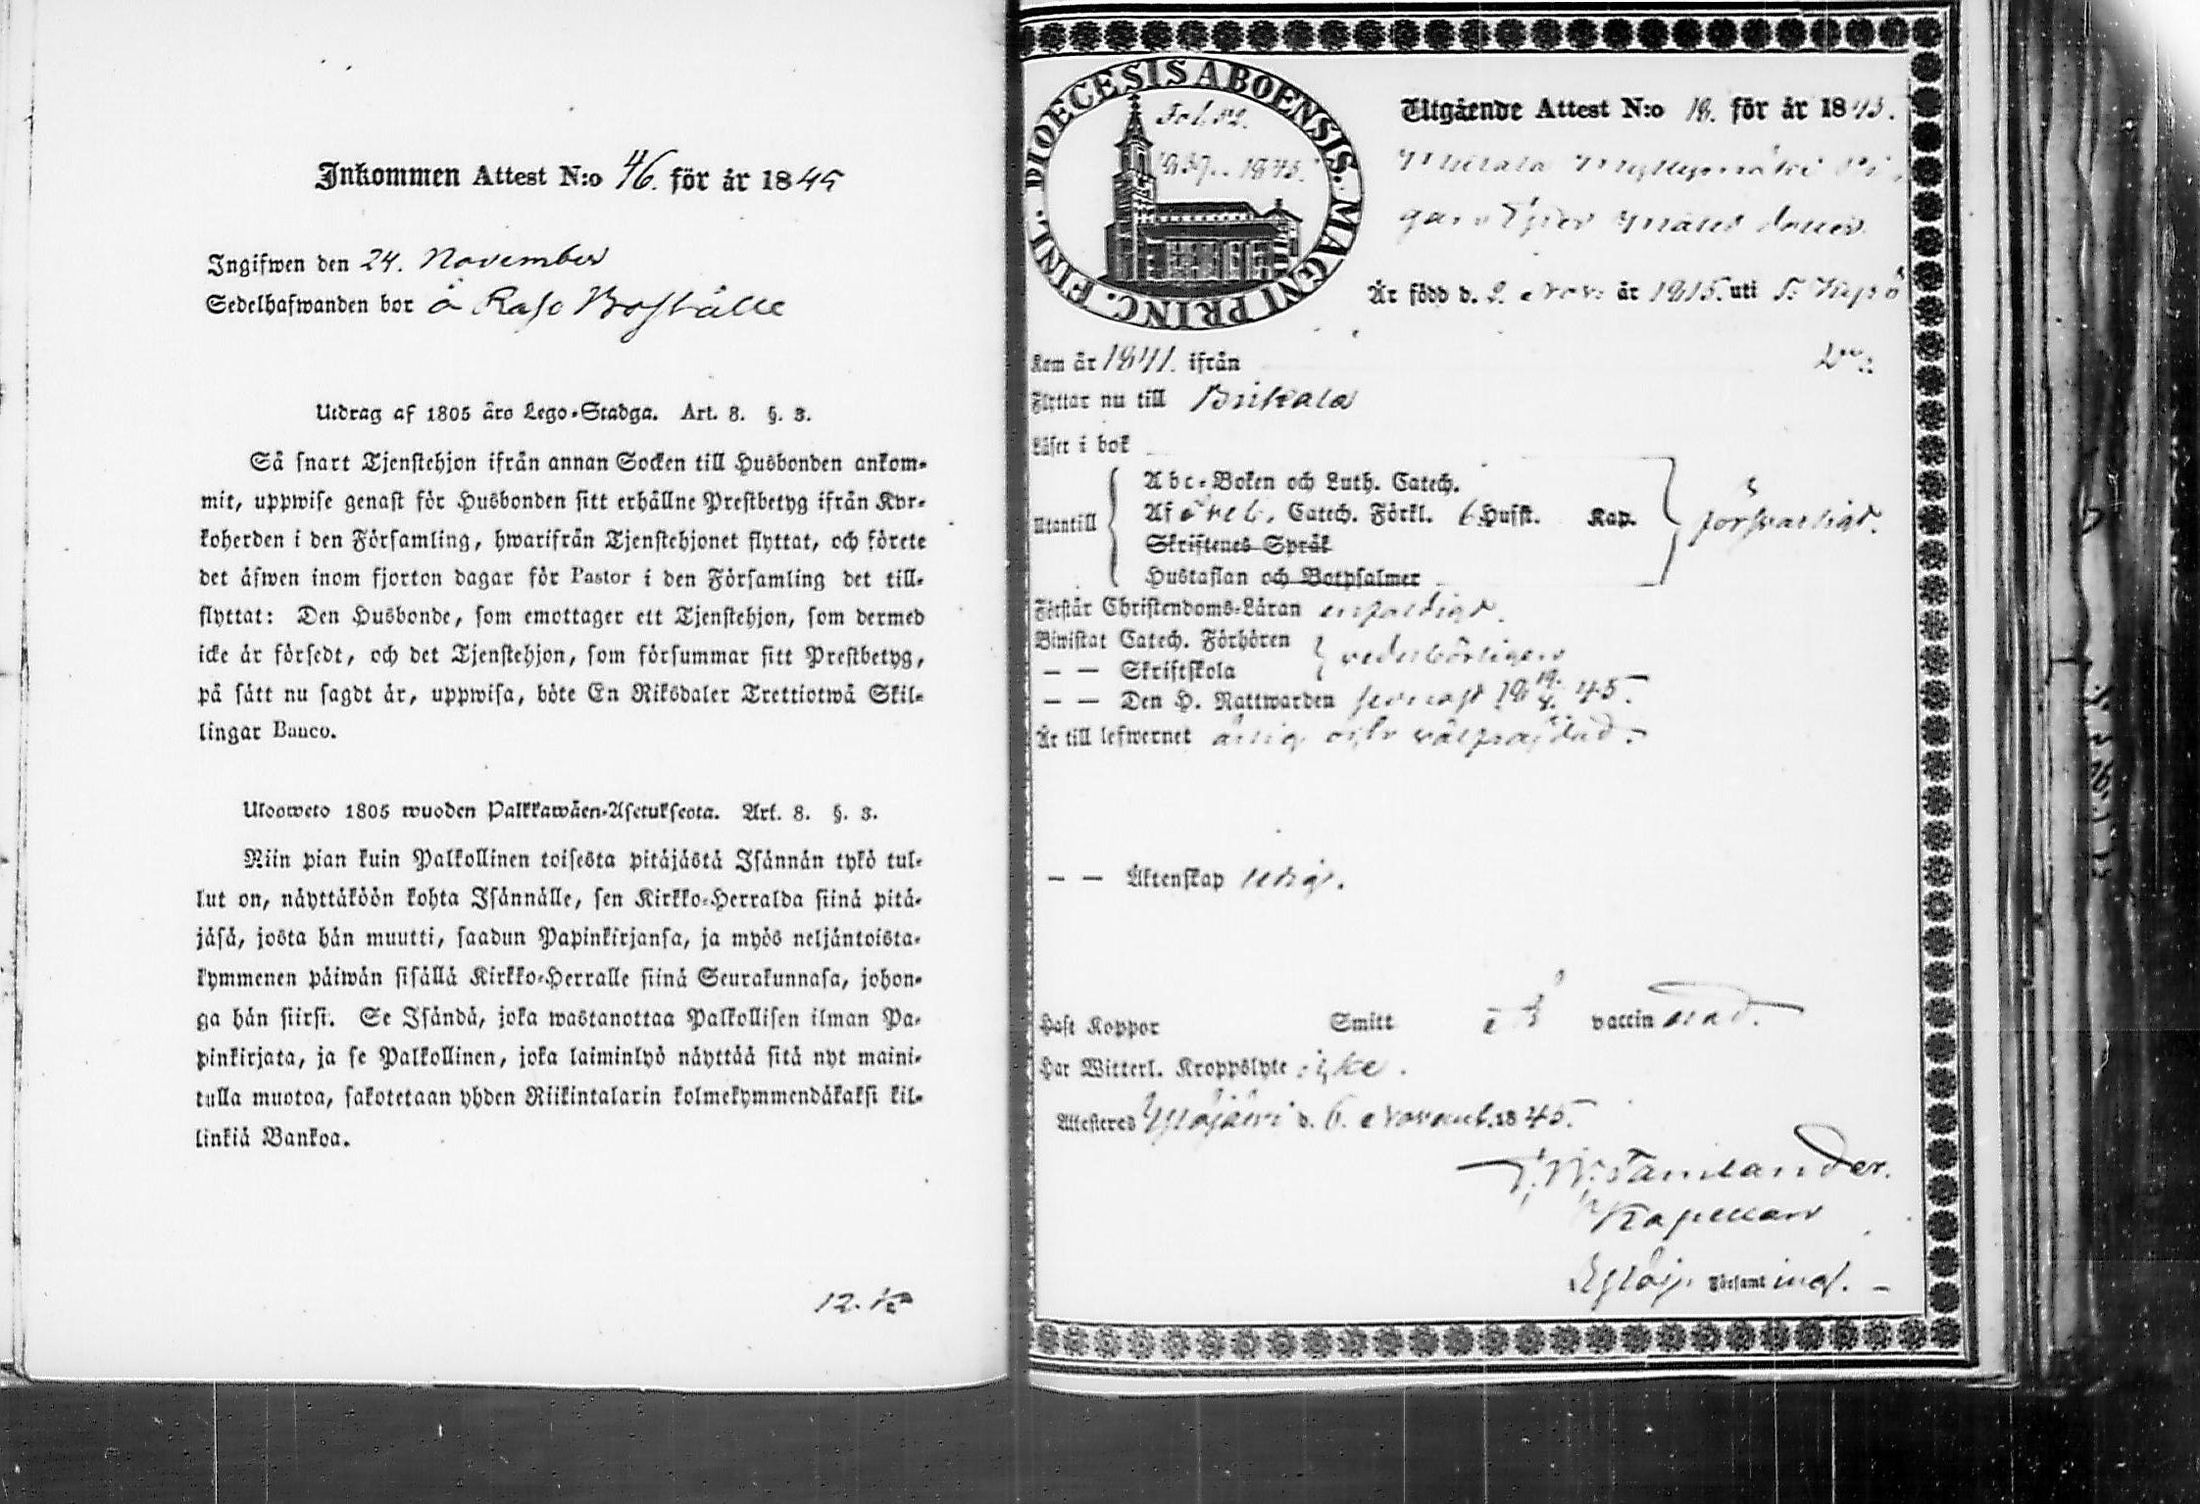 Inkommen Attest N:o 46. för år 1845
Ingifwen den 24. November
Sedelhafwanden bor å Raso Boställe
Utdrag af 1805 års Lego-Stadga. Art. 8. §. 3.
Så snart Tjenstehjon ifrån annan Socken till Husbonden ankom-
mit, uppwise genast för Husbonden sitt erhållne Prestbetyg ifrån Kyr-
koherden i den Församling, hwarifrån Tjenstehjonet flyttat, och förete
det äfwen inom fjorton dagar för Pastor i den Församling det till-
flyttat: Den Husbonde, som emottager ett Tjenstehjon, som dermed
icke är försedt, och det Tjenstehjon, som försummar sitt Prestbetyg,
på sätt nu sagdt är, uppwisa, böte En Riksdaler Trettiotwå Skil-
lingar Banco.
Ulosweto 1805 wuoden Palkkawäen-Asetuksesta. Art. 8. §. 3.
Niin pian kuin Palkollinen toisesta pitäjästä Isännän tykö tul-
lut on, näyttäköön kohta Isännälle, sen Kirkko-Herralda siinä pitä-
jäsä, josta hän muutti, saadun Papinkirjansa, ja myös neljäntoista-
kymmenen päiwän sisällä Kirkko-Herralle siinä Seurakunnasa, johon-
ga hän siirsi. Se Isändä, joka wastanottaa Palkollisen ilman Pa-
pinkirjata, ja se Palkollinen, joka laiminlyö näyttää sitä nyt maini-
tulla muotoa, sakotetaan yhden Riikintalarin kolmekymmendäkaksi kil-
linkiä Bankoa.
12. K
DIOECESIS ABOENSIS. MAGNI PRINC. FINL.
Fol. 82.
1837. 1843.
Utgående Attest N:o 18. för år 1845.
Mattila Myllymäki Pi-
gan Mats dotter
Är född d. 2. Nov. år 1815. uti
Kom år 1841. ifrån
Flyttar nu till Birkala
Läser i bok
Utantill
Abc-Boken och Luth. Catech.
Af Catech. Förkl. 6 Husst. Kap.
försvarligt.
Skriftenes Språk
Hustaflan och Botpsalmer
Förstår Christendoms-Läran enfaldigt.
Biwistat Catech. Förhören
vederbörligen
— — Skriftskola
— — Den H. Nattwarden senast 45.
Är till lefwernet ärlig och välfrejdad.
— — Äktenskap ledig.
Haft Koppor Smitt är vaccinerad.
Har Witterl. Kroppslyte icke.
Attesteras Ylöjärvi d. 6. Novemb. 1845.
Kapellan
Ylöj. Församl ingl.